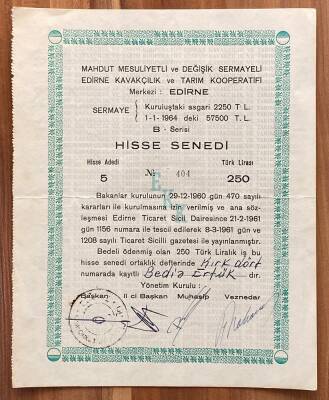 MAHDUT MESULİYETLİ ve DEĞİŞİK SERMAYELİ
EDİRNE KAVAKÇILIK ve TARIM KOOPERATİFİ
Merkezi : EDİRNE
SERMAYE { Kuruluştaki asgari 2250 T L.
1-1-1964 deki 57500 T. L.
B - Serisi
HİSSE SENEDİ
Hisse Adedi № 404 Türk Lirası
5 250
Bakanlar kurulunun 29-12-1960 gün 470 sayılı
kararları ile kurulmasına izin verilmiş ve ana söz-
leşmesi Edirne Ticaret Sicil Dairesince 21-2-1961
gün 1156 numara ile tescil edilerek 8-3-1961 gün ve
1208 sayılı Ticaret Sicilli gazetesi ile yayınlanmıştır.
Bedeli ödenmiş olan 250 Türk Liralık iş bu
hisse senedi ortaklık defterinde Kırk dört
numarada kayıtlı Bedia dır.
Yönetim Kurulu :
Başkan II ci Başkan Muhasip Veznedar